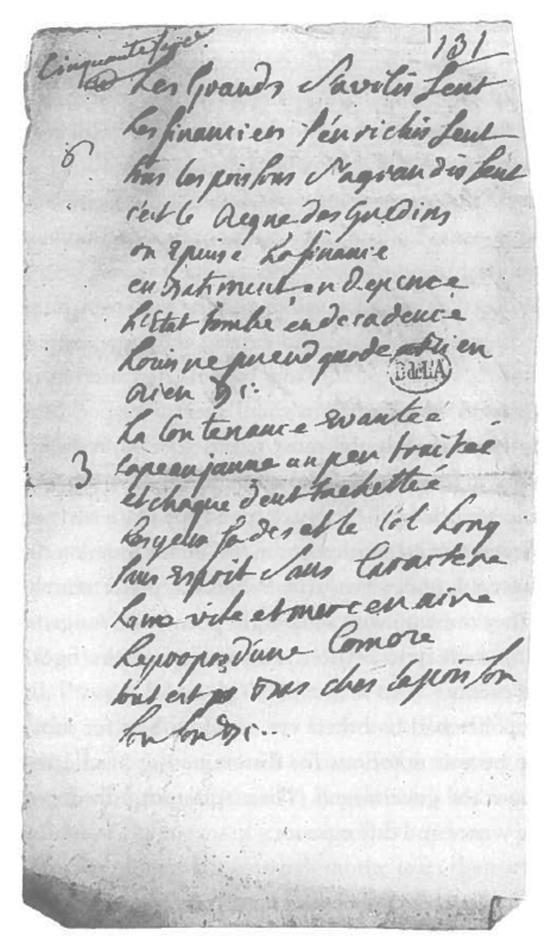 131
Les Grands S'avilissent
Les financiers s'enrichissent
6
tous les poissons s'agrandissent
c'est le Regne des Gredins
on Epuise La finance
en Batiment en Depence
L'Etat tombe en decadence
Louis ne prend garde a Rien
Rien &c:
La Contenance Eventée
3
La peau jaune un peu truitée
et chaque dent tachettée
les yeux fades et le Col Long
Sans Esprit Sans Caractere
L'ame vile et mercenaire
Le propos d'une Comere
tout est Bas ches la poisson
Son Son &c..